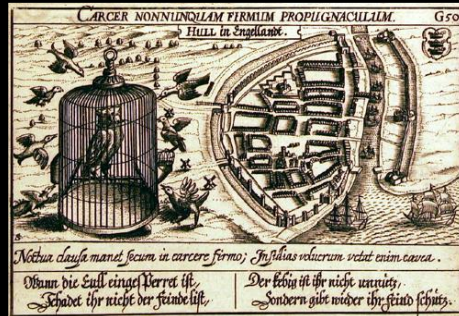 CARCER NONNUNQUAM FIRMUM PROPUGNACULUM. G50
HULL in Engellandt.
Noctua clausa manet secum in carcere firmo; Insidias volucrum vetat enim cavea.
Wann die Eull eingesperret ist,
Schadet ihr nicht der feinde list,
Der kebig ist ihr nicht unnütz,
Sondern gibt wieder ihr feind schütz.